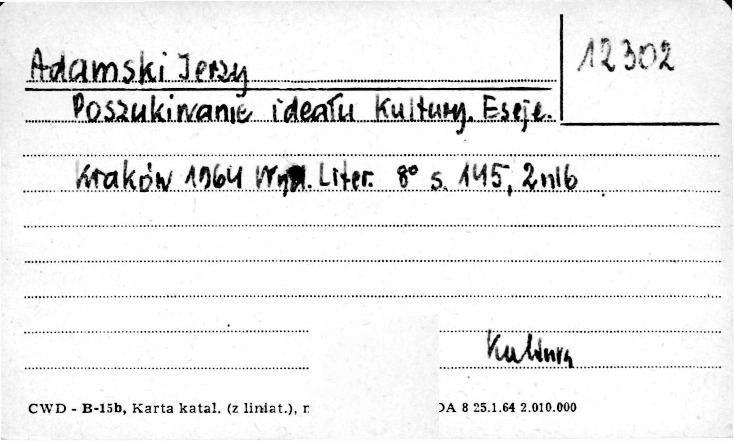 Adamski Jerzy
12302
Poszukiwanie ideału kultury. Eseje.
Kraków 1964 Wyd. Liter. 8° s. 145, 2 nlb
Kultura
CWD - B-15b, Karta katal. (z liniat.), r
DA 8 25.1.64 2.010.000